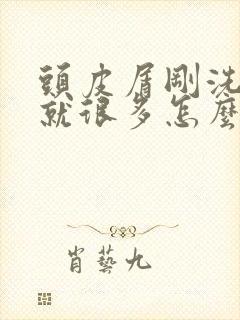 頭皮屑剛洗
就很多怎麼
肖藝九